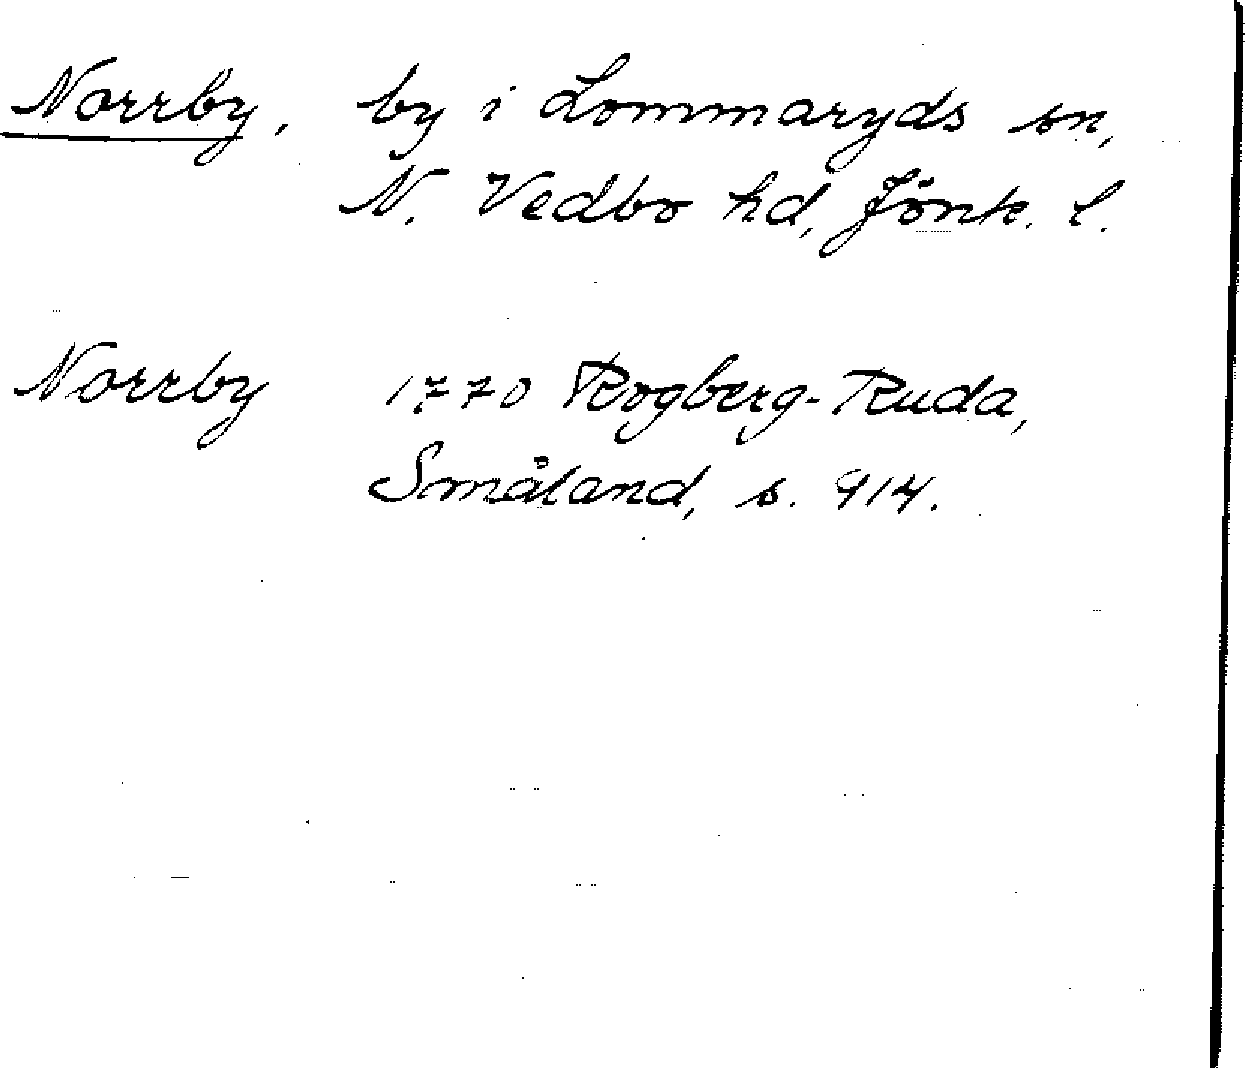 Norrby, by i Lommaryds sn,
N. Vedbo hd, Jönk. l.
Norrby 1770 Rogberg-Ruda,
Småland, s. 914.